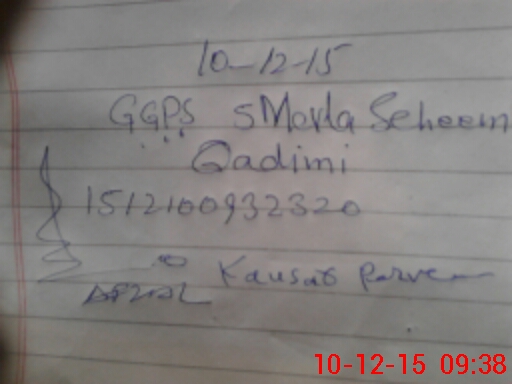 10-12-15
GGPS 5 Marla Scheem
Qadimi
1512100932320
Kausar Parveen
10-12-15 09:38